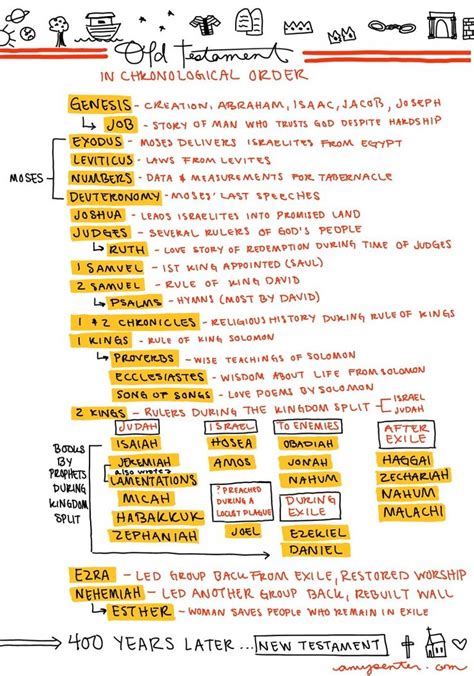 Old Testament
IN CHRONOLOGICAL ORDER
GENESIS - CREATION, ABRAHAM, ISAAC, JACOB, JOSEPH
JOB - STORY OF MAN WHO TRUSTS GOD DESPITE HARDSHIP
MOSES
EXODUS - MOSES DELIVERS ISRAELITES FROM EGYPT
LEVITICUS - LAWS FROM LEVITES
NUMBERS - DATA & MEASUREMENTS FOR TABERNACLE
DEUTERONOMY - MOSES' LAST SPEECHES
JOSHUA - LEADS ISRAELITES INTO PROMISED LAND
JUDGES - SEVERAL RULERS OF GOD'S PEOPLE
RUTH - LOVE STORY OF REDEMPTION DURING TIME OF JUDGES
1 SAMUEL - 1ST KING APPOINTED (SAUL)
2 SAMUEL - RULE OF KING DAVID
PSALMS - HYMNS (MOST BY DAVID)
1 & 2 CHRONICLES - RELIGIOUS HISTORY DURING RULE OF KINGS
1 KINGS - RULE OF KING SOLOMON
PROVERBS - WISE TEACHINGS OF SOLOMON
ECCLESIASTES - WISDOM ABOUT LIFE FROM SOLOMON
SONG OF SONGS - LOVE POEMS BY SOLOMON
2 KINGS - RULERS DURING THE KINGDOM SPLIT
ISRAEL
JUDAH
BOOKS
BY
PROPHETS
DURING
KINGDOM
SPLIT
JUDAH
ISAIAH
JEREMIAH
also wrote
LAMENTATIONS
MICAH
HABAKKUK
ZEPHANIAH
ISRAEL
HOSEA
AMOS
? PREACHED
DURING A
LOCUST PLAGUE
JOEL
TO ENEMIES
OBADIAH
JONAH
NAHUM
DURING
EXILE
EZEKIEL
DANIEL
AFTER
EXILE
HAGGAI
ZECHARIAH
NAHUM
MALACHI
EZRA - LED GROUP BACK FROM EXILE, RESTORED WORSHIP
NEHEMIAH - LED ANOTHER GROUP BACK, REBUILT WALL
ESTHER - WOMAN SAVES PEOPLE WHO REMAIN IN EXILE
400 YEARS LATER... NEW TESTAMENT
amypenter.com